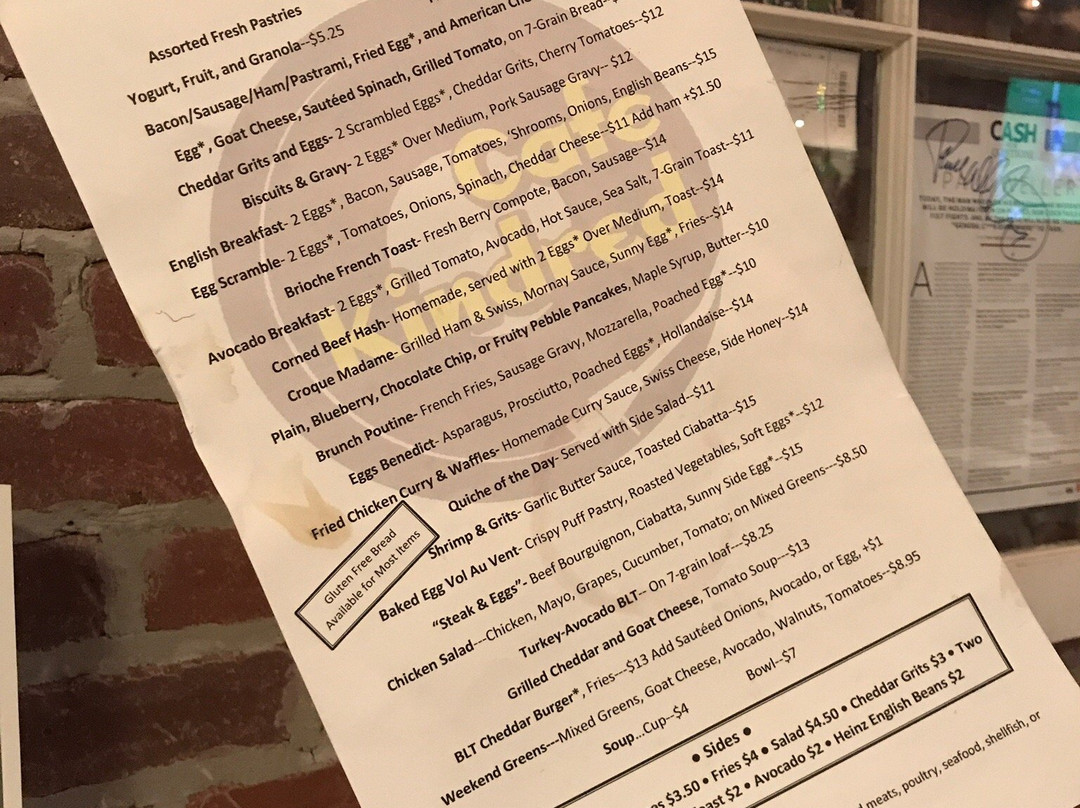 Assorted Fresh Pastries
Yogurt, Fruit, and Granola--$5.25
Bacon/Sausage/Ham/Pastrami, Fried Egg*, and American
Egg*, Goat Cheese, Sautéed Spinach, Grilled Tomato, on 7-Grain Bread--
Cheddar Grits and Eggs- 2 Scrambled Eggs*, Cheddar Grits, Cherry Tomatoes--$12
Biscuits & Gravy- 2 Eggs* Over Medium, Pork Sausage Gravy-- $12
English Breakfast- 2 Eggs*, Bacon, Sausage, Tomatoes, ‘Shrooms, Onions, English Beans--$15
Egg Scramble- 2 Eggs*, Tomatoes, Onions, Spinach, Cheddar Cheese--$11 Add ham +$1.50
Brioche French Toast- Fresh Berry Compote, Bacon, Sausage--$14
Avocado Breakfast- 2 Eggs*, Grilled Tomato, Avocado, Hot Sauce, Sea Salt, 7-Grain Toast--$11
Corned Beef Hash- Homemade, served with 2 Eggs* Over Medium, Toast--$14
Croque Madame- Grilled Ham & Swiss, Mornay Sauce, Sunny Egg*, Fries--$14
Plain, Blueberry, Chocolate Chip, or Fruity Pebble Pancakes, Maple Syrup, Butter--$10
Brunch Poutine- French Fries, Sausage Gravy, Mozzarella, Poached Egg*--$10
Eggs Benedict- Asparagus, Prosciutto, Poached Eggs*, Hollandaise--$14
Fried Chicken Curry & Waffles- Homemade Curry Sauce, Swiss Cheese, Side Honey--$14
Quiche of the Day- Served with Side Salad--$11
Shrimp & Grits- Garlic Butter Sauce, Toasted Ciabatta--$15
Baked Egg Vol Au Vent- Crispy Puff Pastry, Roasted Vegetables, Soft Eggs*--$12
“Steak & Eggs”- Beef Bourguignon, Ciabatta, Sunny Side Egg*--$15
Chicken Salad---Chicken, Mayo, Grapes, Cucumber, Tomato; on Mixed Greens---$8.50
Turkey-Avocado BLT-- On 7-grain loaf---$8.25
Grilled Cheddar and Goat Cheese, Tomato Soup---$13
BLT Cheddar Burger*, Fries---$13 Add Sautéed Onions, Avocado, or Egg, +$1
Weekend Greens---Mixed Greens, Goat Cheese, Avocado, Walnuts, Tomatoes--$8.95
Soup...Cup--$4 Bowl--$7
• Sides •
$3.50 • Fries $4 • Salad $4.50 • Cheddar Grits $3 • Two
$2 • Avocado $2 • Heinz English Beans $2
meats, poultry, seafood, shellfish, or
Gluten Free Bread
Available for Most Items
Cafe
Kindred
CASH
A